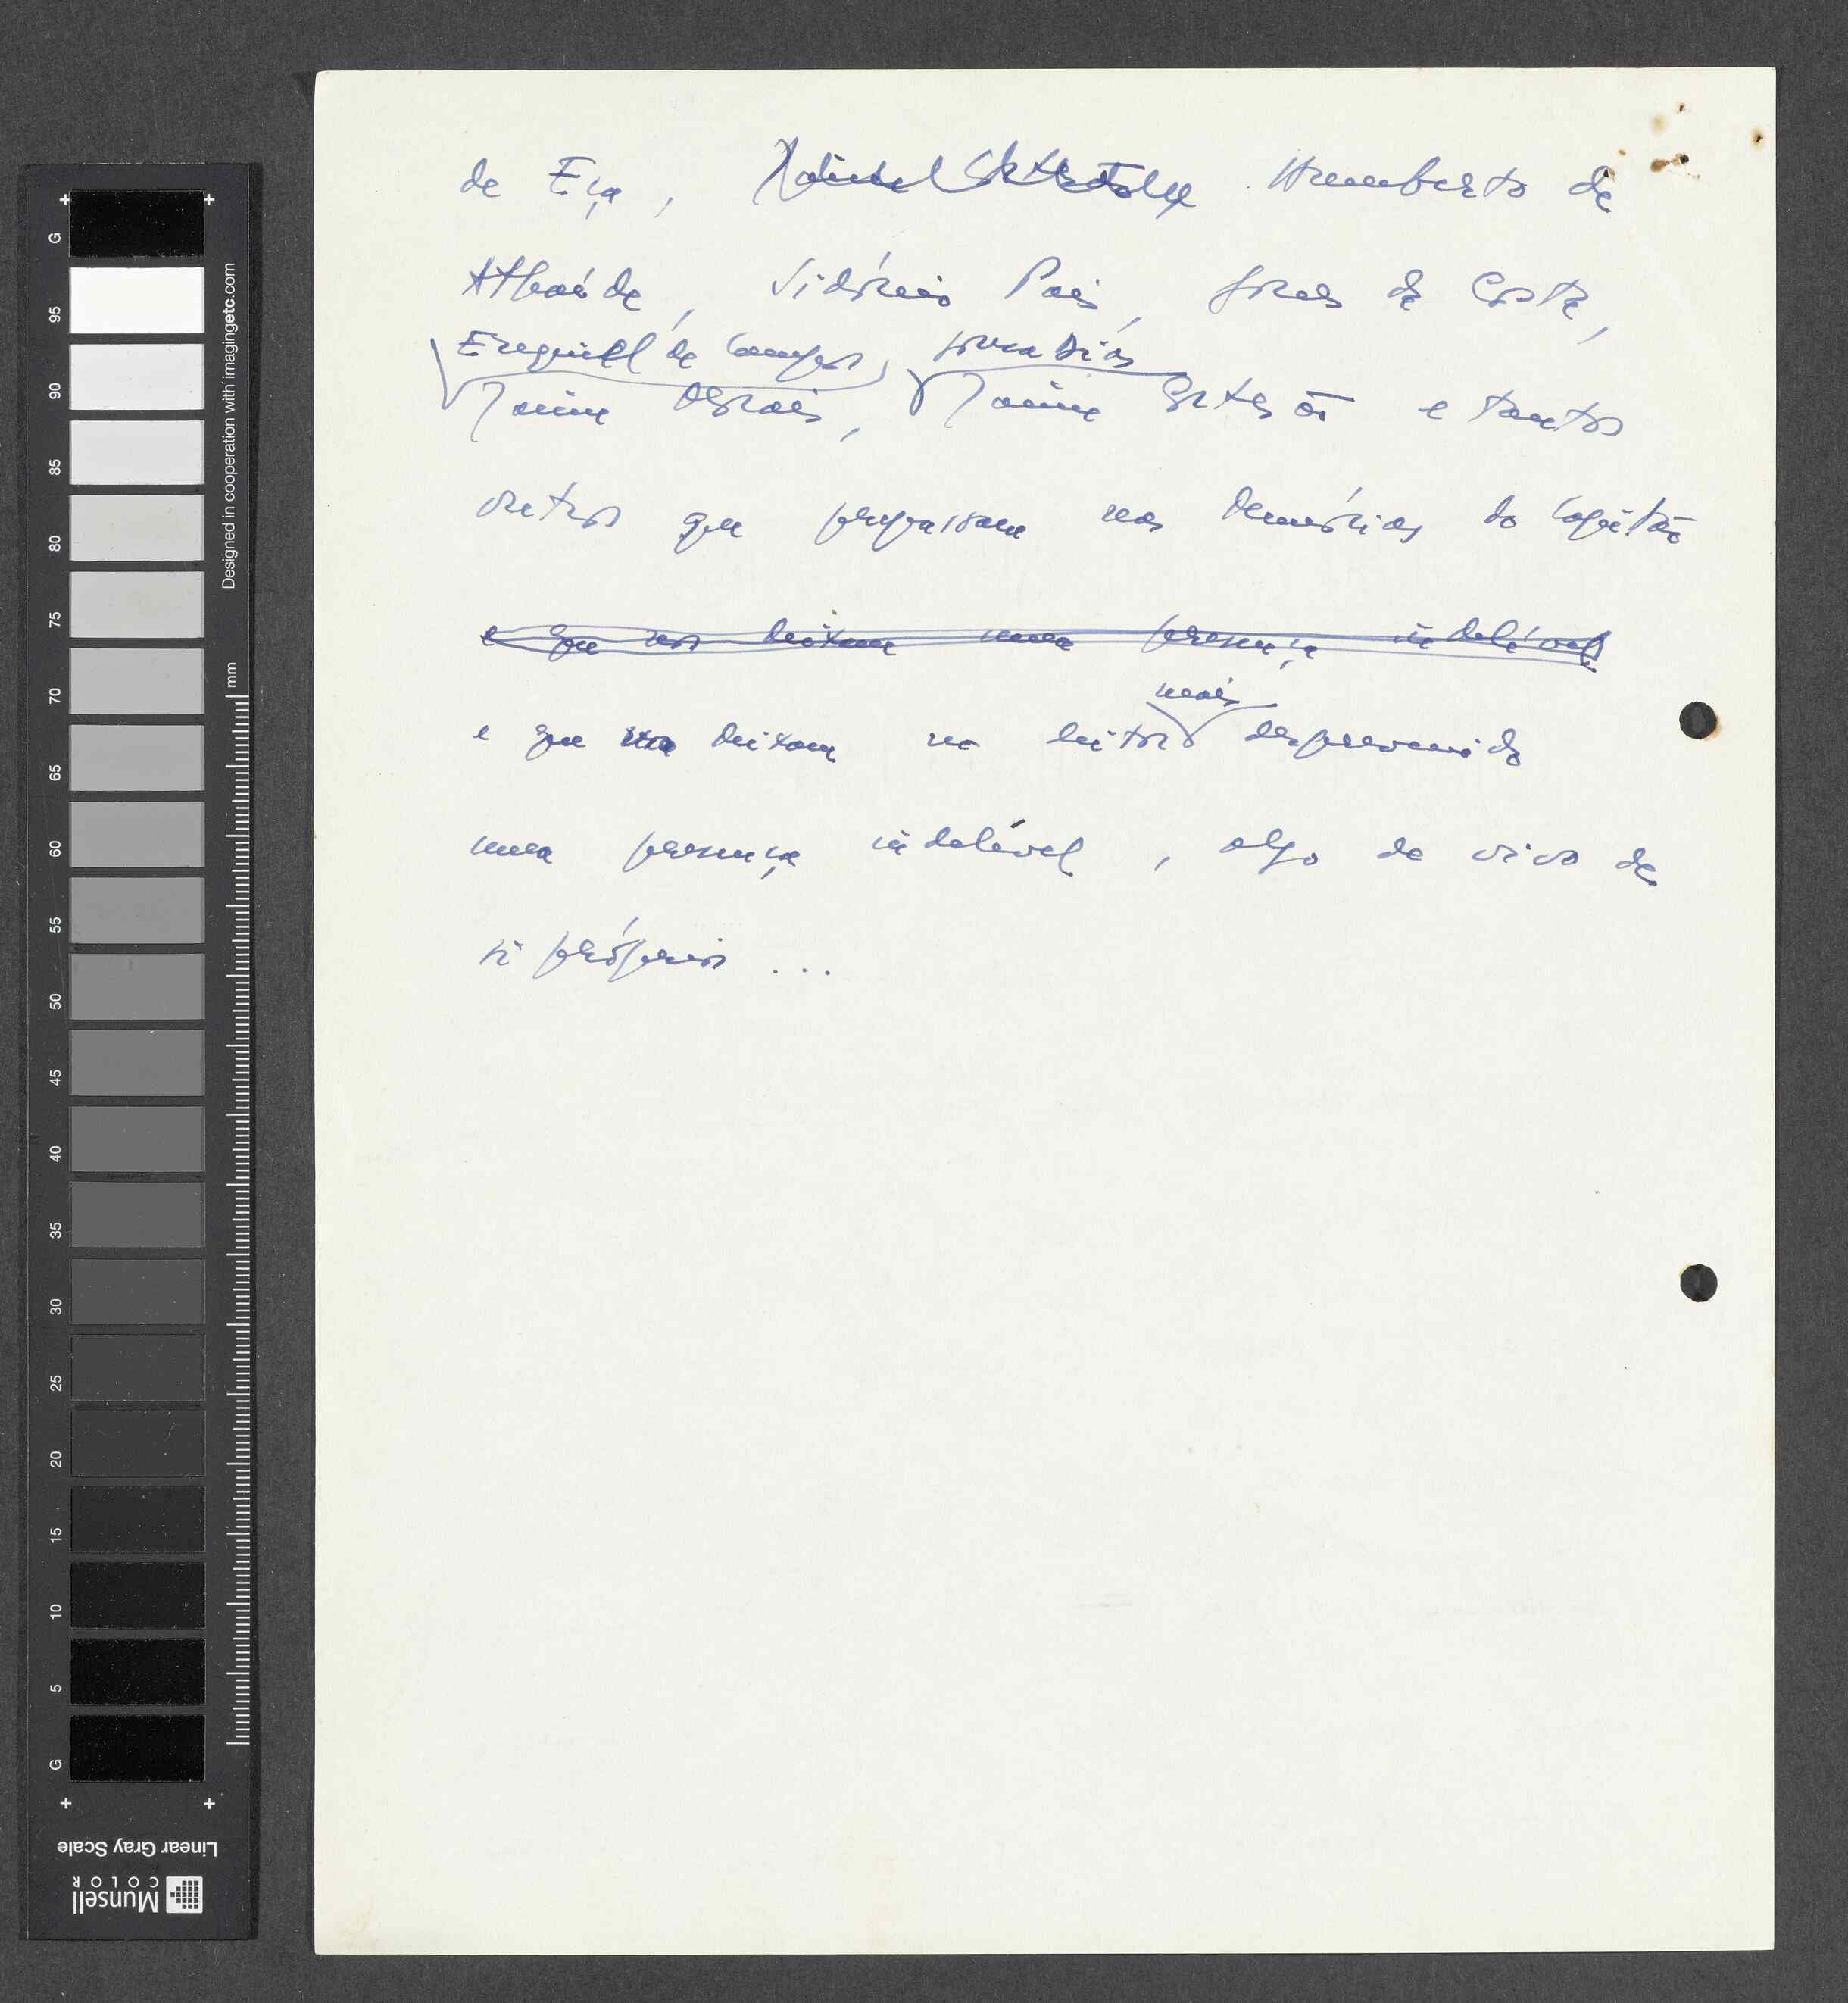 de Eça, Humberto de
Athaíde, Sidónio Pais, Gomes da Costa,
Ezequiel de Campos, Sousa Dias
Jaime Morais, Jaime Cortesão e tantos
outros que perpassam nas Memórias do Capitão
e que nos deixam uma presença indelével
mais
e que deixam no leitor desprevenido
uma presença indelével, algo de vivo de
si próprios ...
G
95
90
85
80
75
70
65
60
55
50
45
40
35
30
25
20
15
10
5
G
mm
Designed in cooperation with imagingetc.com
Linear Gray Scale
Munsell
COLOR